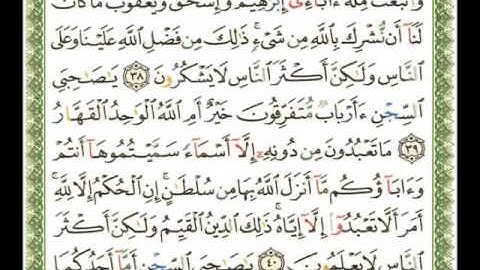 وَاتَّبَعْتُ مِلَّةَ ءَابَآءِىٓ إِبْرَٰهِيمَ وَإِسْحَٰقَ وَيَعْقُوبَ مَا كَانَ
لَنَآ أَن نُّشْرِكَ بِاللَّهِ مِن شَىْءٍ ۚ ذَٰلِكَ مِن فَضْلِ اللَّهِ عَلَيْنَا وَعَلَى
النَّاسِ وَلَٰكِنَّ أَكْثَرَ النَّاسِ لَا يَشْكُرُونَ ٣٨ يَٰصَٰحِبَىِ
السِّجْنِ ءَأَرْبَابٌ مُّتَفَرِّقُونَ خَيْرٌ أَمِ اللَّهُ الْوَٰحِدُ الْقَهَّارُ
٣٩ مَا تَعْبُدُونَ مِن دُونِهِۦٓ إِلَّآ أَسْمَآءً سَمَّيْتُمُوهَآ أَنتُمْ
وَءَابَآؤُكُم مَّآ أَنزَلَ اللَّهُ بِهَا مِن سُلْطَٰنٍ ۚ إِنِ الْحُكْمُ إِلَّا لِلَّهِ ۚ
أَمَرَ أَلَّا تَعْبُدُوٓا۟ إِلَّآ إِيَّاهُ ۚ ذَٰلِكَ الدِّينُ الْقَيِّمُ وَلَٰكِنَّ أَكْثَرَ
النَّاسِ لَا يَعْلَمُونَ ٤٠ يَٰصَٰحِبَىِ السِّجْنِ أَمَّآ أَحَدُكُمَا